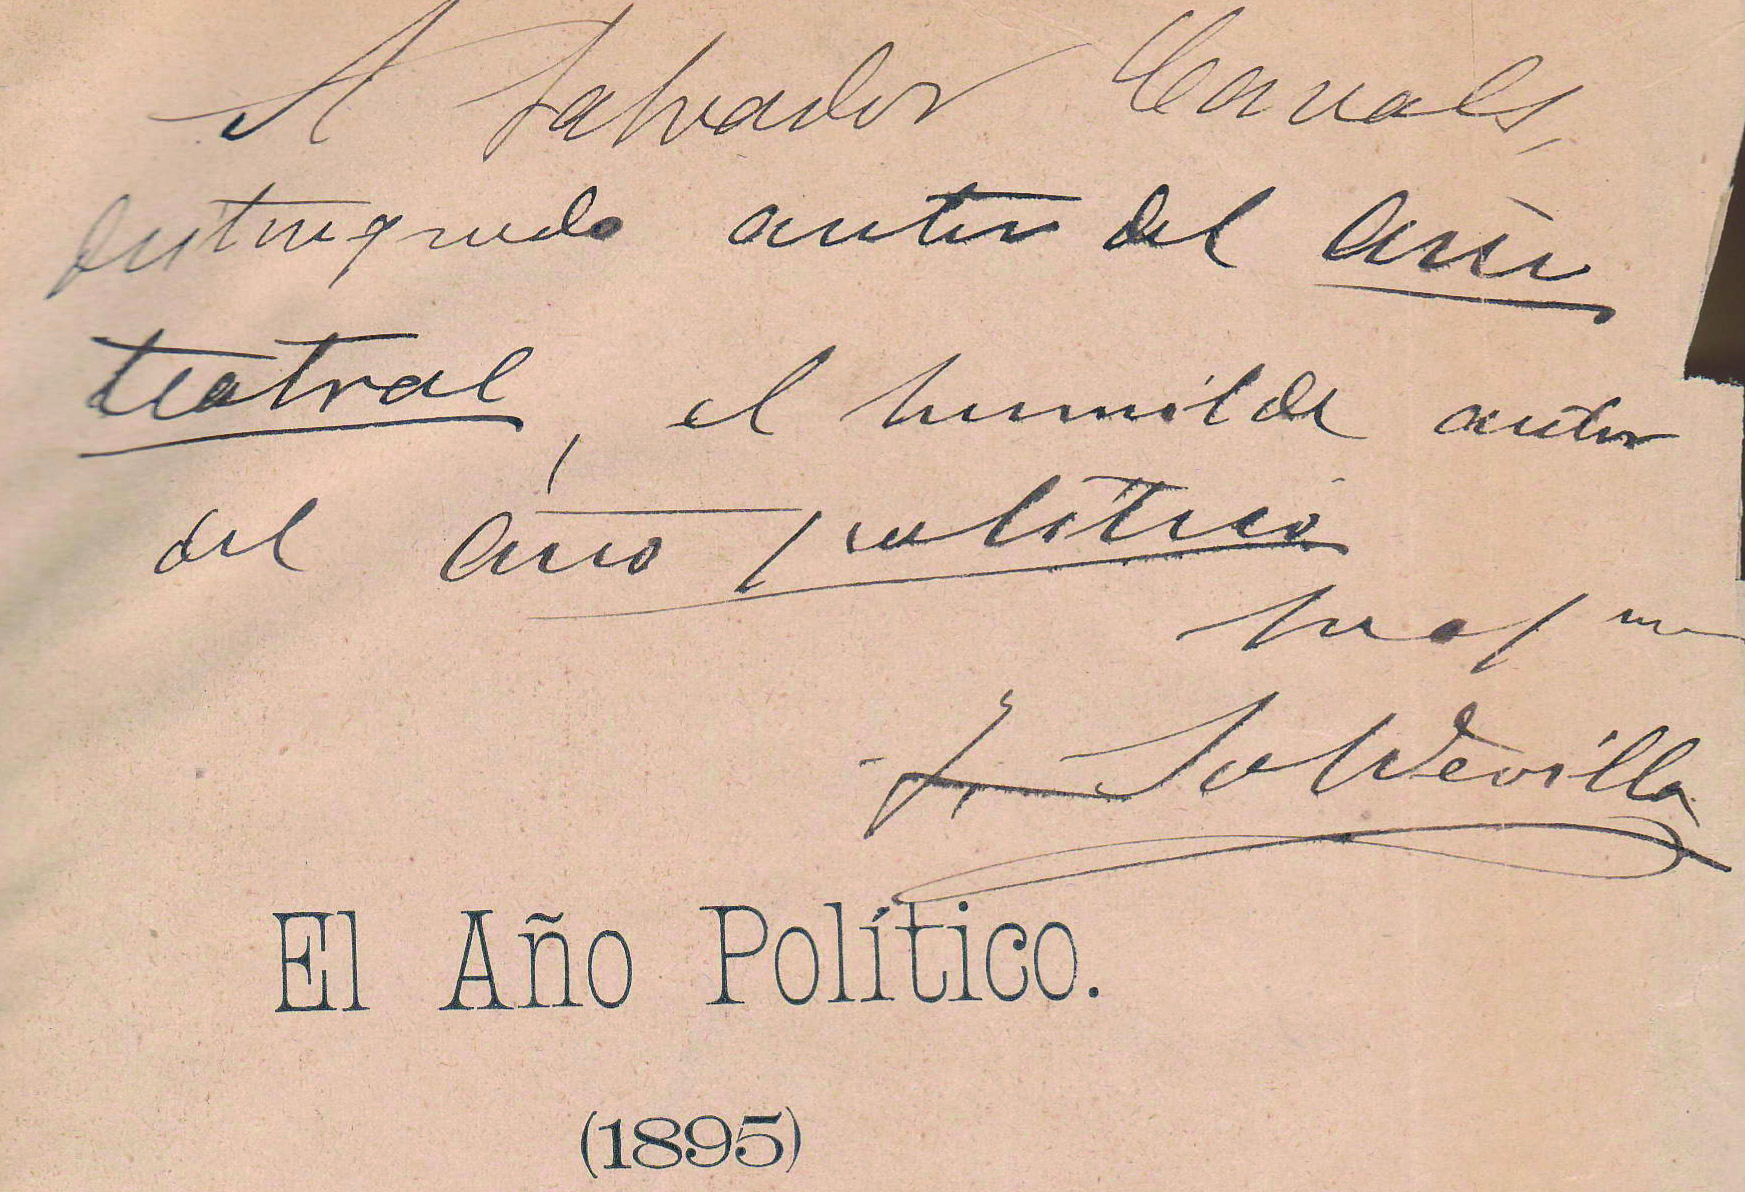 A Salvador Canals,
distinguido autor del año
teatral, el humilde autor
del año político
F. Soldevilla
El Año Político.
(1895)